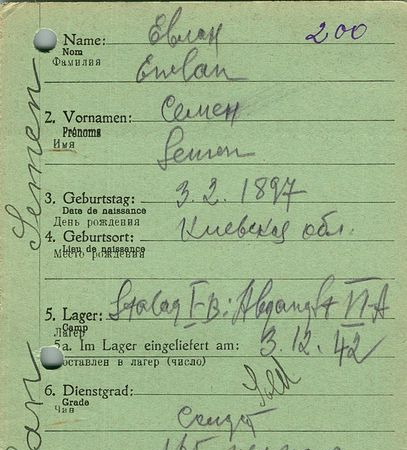 Name: Евлан 200
Nom
Фамилия Ewlan
2. Vornamen: Семен
Prénoms
Имя Semen
3. Geburtstag: 3.2.1897
Date de naissance
День рождения
4. Geburtsort: Киевская обл.
Lieu de naissance
Место рождения
5. Lager: Stalag I-B: Abgang St VI-A
Camp
Лагер
5a. Im Lager eingeliefert am: 3.12.42
оставлен в лагер (число)
6. Dienstgrad: Sold
Grade
Чин
Солдат
Semen